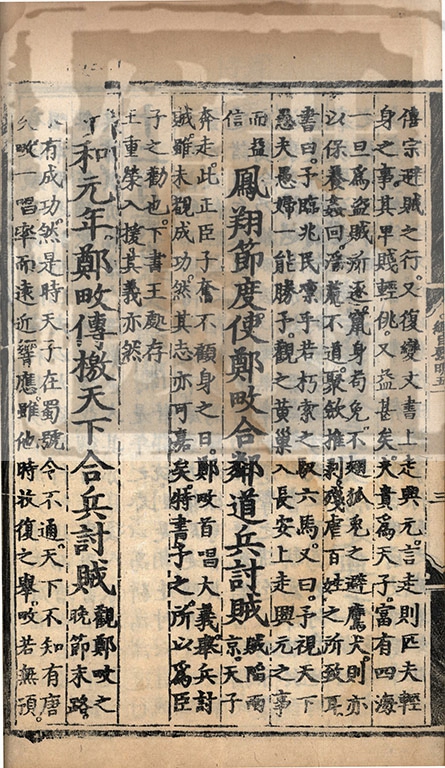 僖宗避賊之行又復變文書上走興元言走則匹夫輕
身之事其卑賤輕佻又益甚矣夫貴爲天子富有四海
一旦爲盗賊所逐竄身苟免不翅狐兎之避鷹犬則亦
以保養姦回淫荒不道聚歛推剥殘虐百姓之所致耳
書曰予臨兆民凛乎若朽索之馭六馬又曰予視天下
愚夫愚婦一能勝予觀之黄巢入長安上走興元之事
而益
信
鳳翔節度使鄭畋合鄰道兵討賊
賊陷兩
京天子
奔走此正臣子奮不顧身之日鄭畋首唱大義舉兵討
賊雖未觀成功然其志亦可嘉矣特書予之所以爲臣
子之勸也下書王處存
王重榮入援其義亦然
和元年鄭畋傳檄天下合兵討賊
觀鄭畋之
晚節末路
有成功然是時天子在蜀號令不通天下不知有唐
矣畋一唱率而遠近響應雖他時收復之舉畋若無預